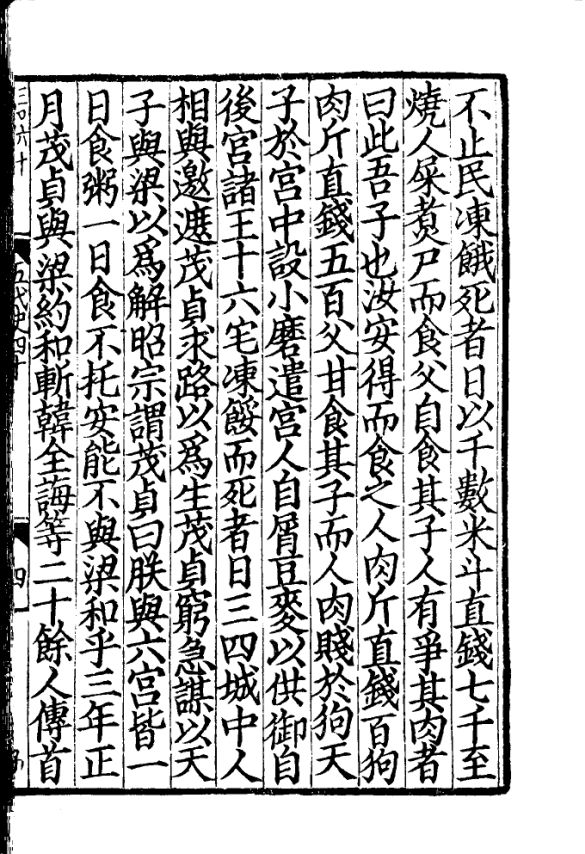 不止民凍餓死者日以千數米斗直錢七千至
燒人屎煑尸而食父自食其子人有爭其肉者
曰此吾子也汝安得而食之人肉斤直錢百狗
肉斤直錢五百父甘食其子而人肉賤於狗天
子於宮中設小磨遣宮人自屑豆麥以供御自
後宮諸王十六宅凍餒而死者日三四城中人
相與邀遮茂貞求路以爲生茂貞窮急謀以天
子與梁以爲解昭宗謂茂貞曰朕與六宮皆一
日食粥一日食不托安能不與梁和乎三年正
月茂貞與梁約和斬韓全誨等二十餘人傳首
三四六十
五代史四十
四